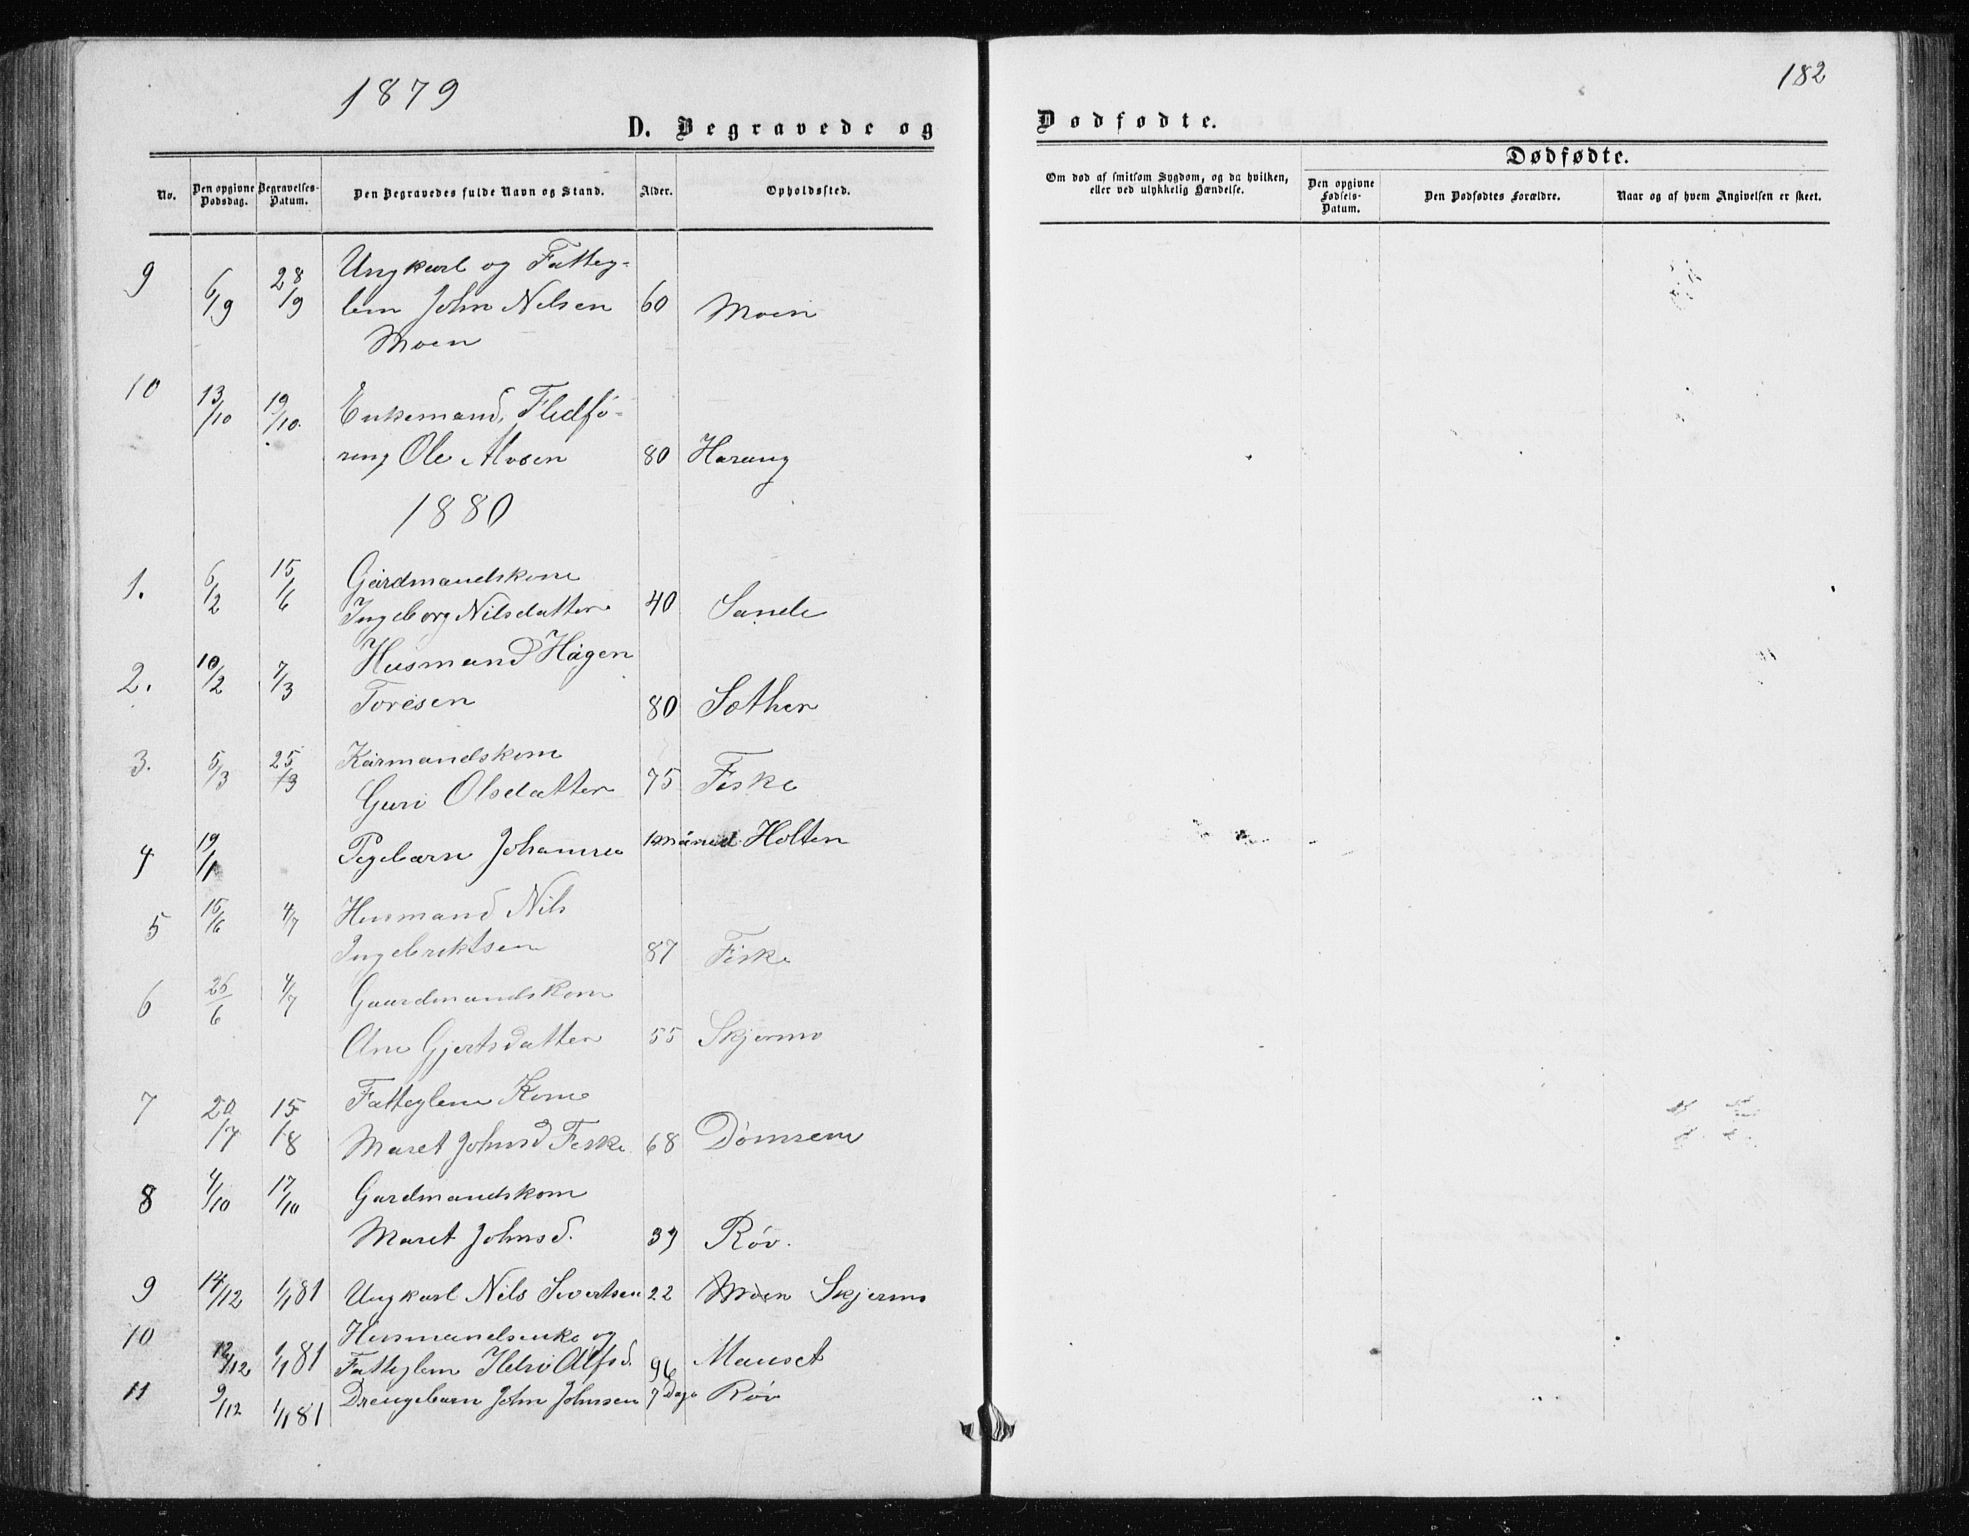 1879
182
D. Begravede og
Dødfødte.
No.
Den opgivne Dødsdag.
Begravelses-Datum.
Den Begravedes fulde Navn og Stand.
Alder.
Opholdssted.
Om død af smitsom Sygdom, og da hvilken,
eller ved ulykkelig Hændelse.
Dødfødte.
Den opgivne Fødsels-Datum.
Den Dødfødtes Forældre.
Naar og af hvem Angivelsen er skeet.
9 6/9 28/9 Ungkarl og Fatteg-
lem John Nilsen 60 Moen
Moen
10 13/10 19/10 Enkemand, Fledfø-
ring Ole 80 Harang
1880
1. 6/2 15/6 Gårdmandskone
Ingeborg Nilsdatter 40 Sande
2. 10/2 7/3 Husmand Hågen
Toresen 80 Sæther
3. 5/3 25/3 Kårmandskone
Guri Olsdatter 75 Fiske
4 19/1 Pigebarn 1 måned Holten
5 15/6 4/7 Husmand Nils
Ingebriktsen 87 Fiske
6 26/6 4/7 Gaardmandskone
Ane Gjertsdatter 55 Skjermo
7 20/7 15/8 Fatteglem Kone
Maret Johnsd Fiske 68
8 4/10 17/10 Gardmandskone
Maret Johnsd. Røv.
9 14/12 1/1 81 Ungkarl Nils Sivertsen 22 Moen Skjermo
10 12/12 1/1 81 Husmandsenke og
Fatteglem Alfsd. 96 Mauset
11 9/12 1/1 81 Drengebarn John Johnsen 7 Dage Røv